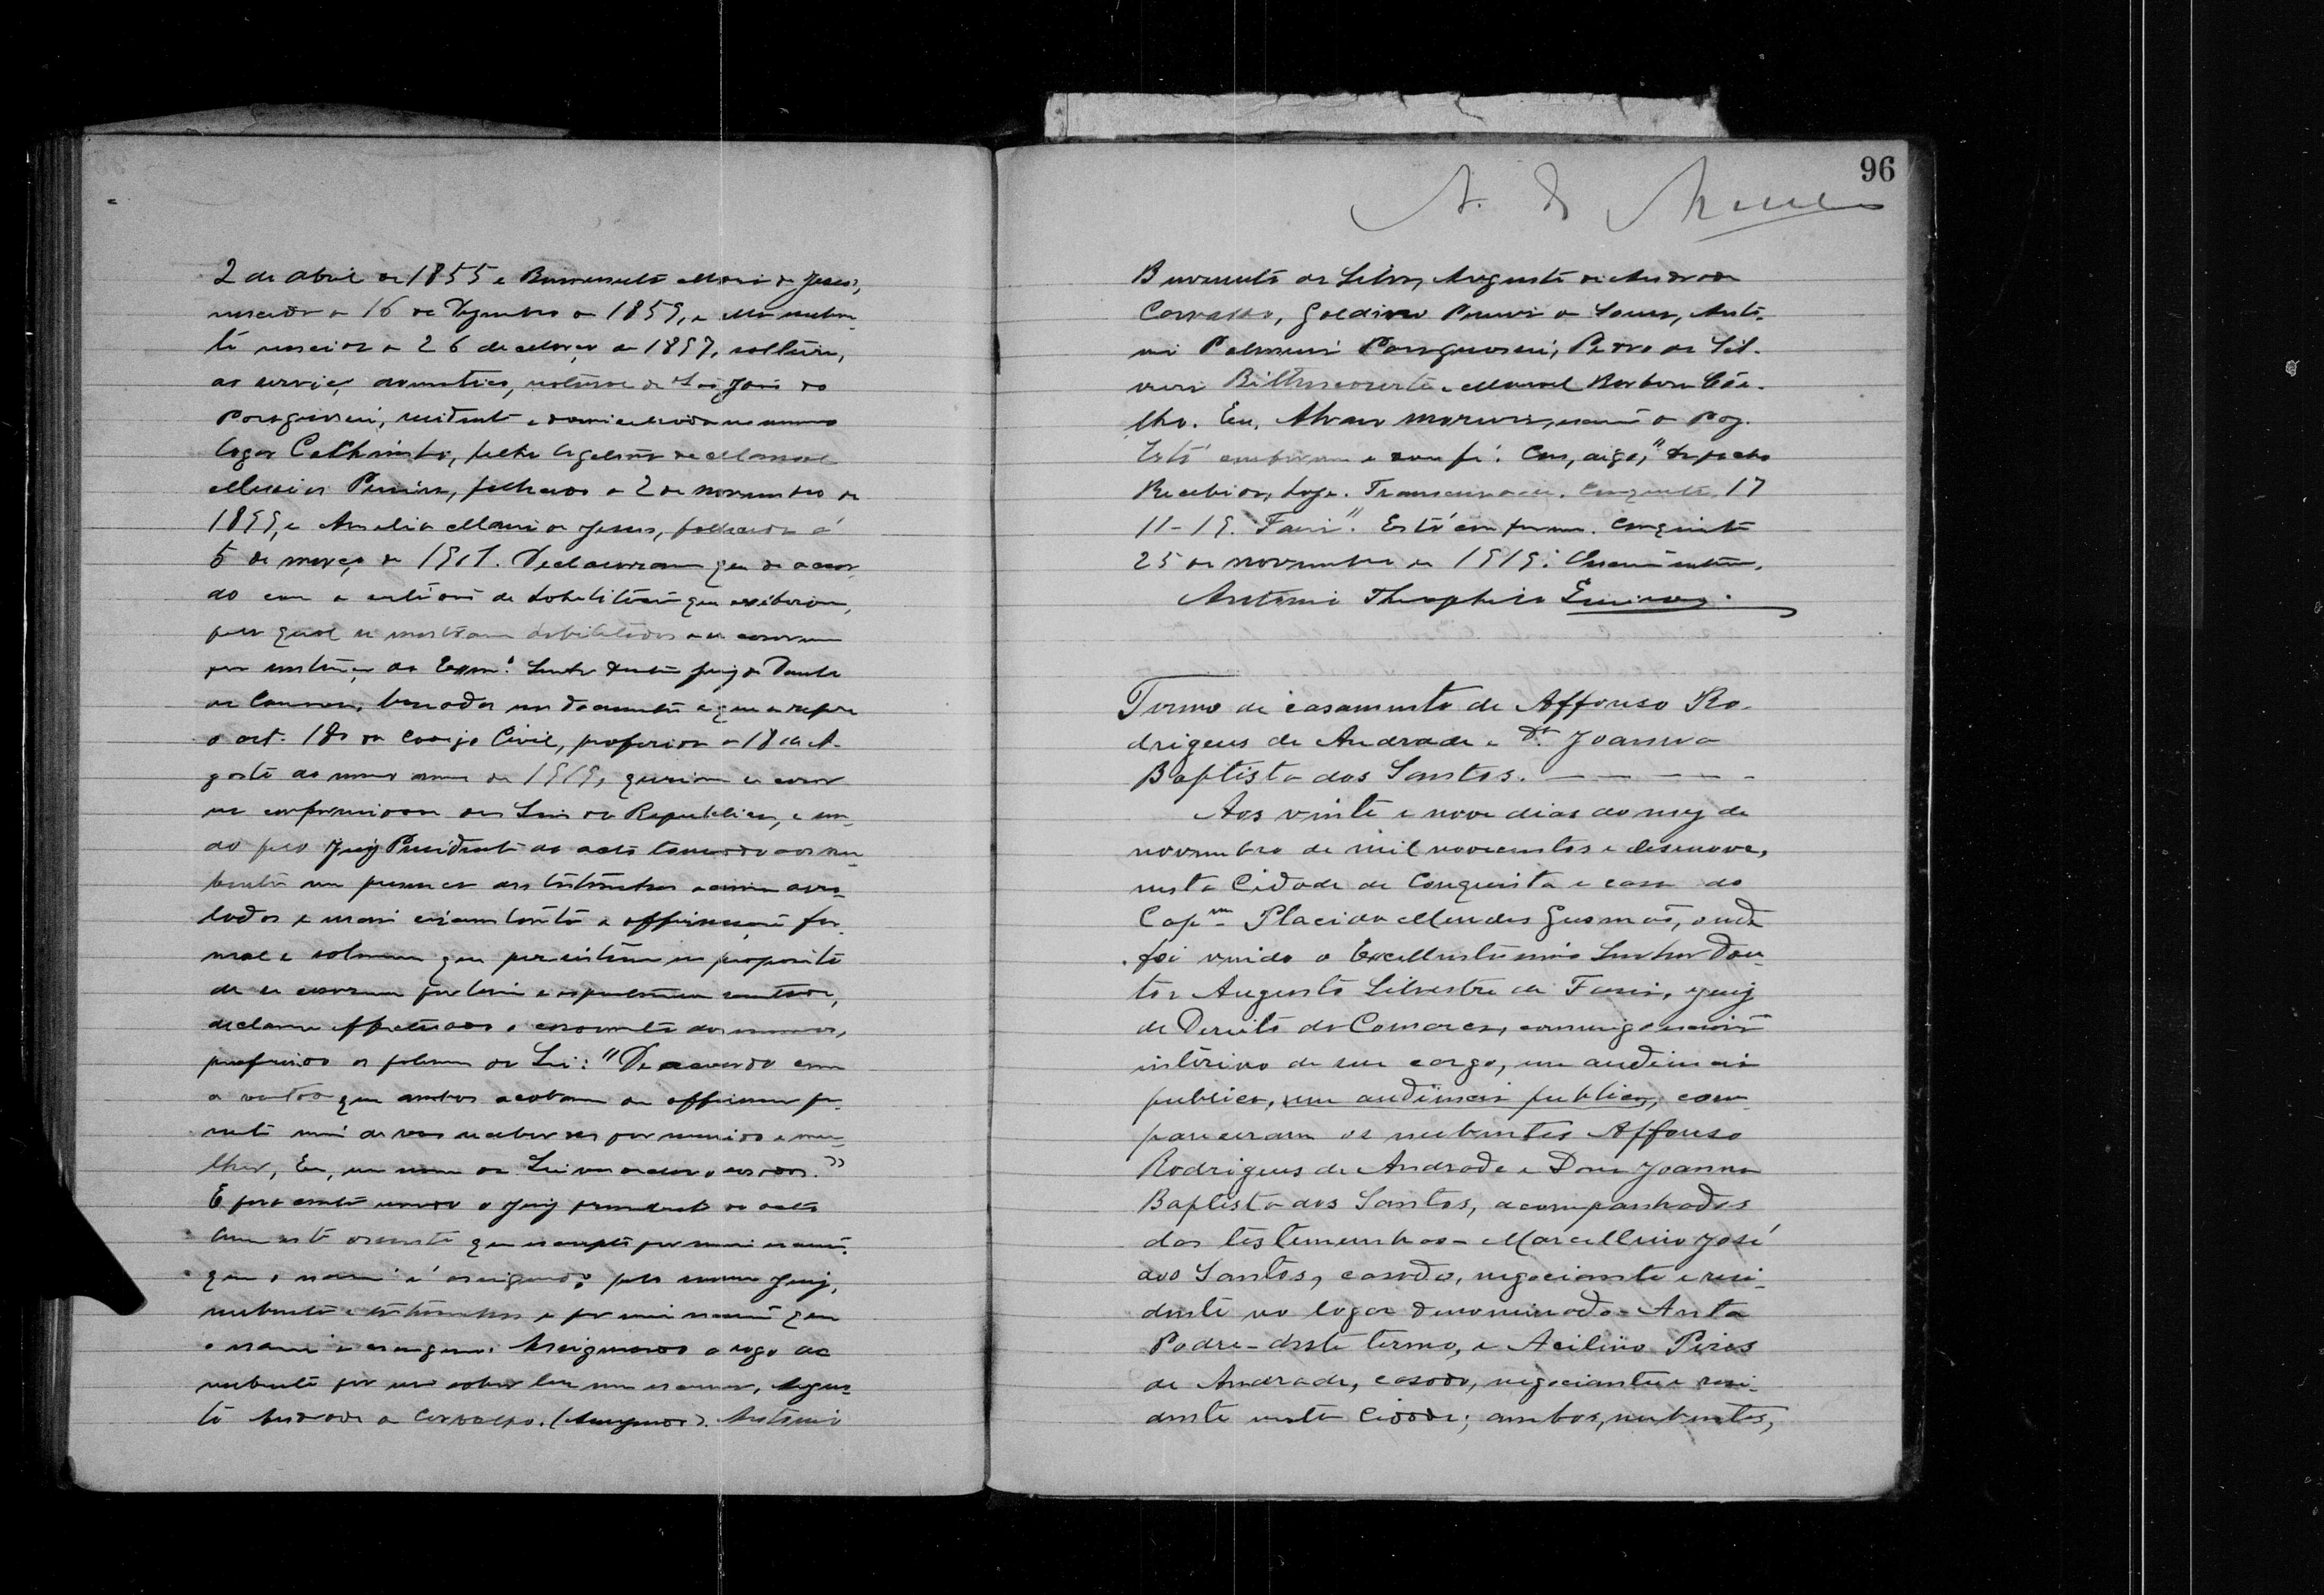 2 de abril de 1855 e Maria de Jesus,
nascida a 16 de Dezembro de 1859, e ella nuben-
te nascida a 26 de Março de 1897, solteira,
de serviço domestico, natural de São João do
Paraguassú, residente e domiciliada no mesmo
logar, filha legitima de Manoel
Messias Pereira, fallecido a 2 de novembro de
1899, e Amelia Maria de Jesus, fallecida á
5 de março de 1901. Declararam que de accor-
do com a certidão de habilitação que exibiram,
pela qual se mostram habilitados a se casarem
por sentença do Exmo. Senhor Doutor Juiz de Direito
da Comarca, baseados nos documentos a que se refere
o art. 180 do Codigo Civil, proferida a 18 de A-
gosto do mesmo anno de 1919, queriam se casar
na conformidade das Leis da Republica, e sen-
do pelo Juiz Presidente do acto tomado aos nu-
bentes em presença das testemunhas acima
e mais circumstantes a affirmação for-
mal e solemne que persistem no proposito
de se casarem por livre e espontanea vontade,
declarou effectuado o casamento dos mesmos,
proferindo as palavras da Lei: "De accordo com
a vontade que ambos acabam de affirmar pe-
rante mim de vos receberdes por marido e mu-
lher, Eu, em nome da Lei vos declaro casados."
E para constar mandou o Juiz presidente do acto
lavrar este assento que escripto por mim escrivão
que o escrevi é assignado pelo mesmo Juiz,
nubentes e testemunhas e por mim escrivão que
o escrevi e assigno. Assignando a rogo da
nubente por não saber ler nem escrever, Augus-
to Andrade de Carvalho. (Assignados). Antonio
96
Benvenuto da Silva, Augusto de Andrade
Carvalho, Galdino Pereira de Souza, Anto-
nio Palmeira Paraguassú, Pedro da Sil-
veira Bittencourt e Manoel Barbosa Coe-
lho. Eu, Alvaro Moreira, escrivão o fiz.
Está conforme e dou fé. Com, digo, "Despacho
Recebido, hoje. Transcreva-se. Conquista, 17
11-19. Faria". Está conforme. Conquista
25 de novembro de 1919. O escrivão interino,
Antonio Theophilo
Termo de casamento de Affonso Ro-
drigues de Andrade e Da. Joanna
Baptista dos Santos. — — — — -
Aos vinte e nove dias do mez de
novembro de mil novecentos e desenove,
nesta Cidade de Conquista e casa do
Capm. Placido Mendes Gusmão, onde
foi vindo o Excellentissimo Senhor Dou-
tor Augusto Silvestre de Faria, Juiz
de Direito da Comarca, commigo escrivão
interino de seu cargo, em audiencia
publica, em audiencia publica, com-
pareceram os nubentes Affonso
Rodrigues de Andrade e Dona Joanna
Baptista dos Santos, acompanhados
das testemunhas - Marcellino José
dos Santos, casado, negociante e resi-
dente no logar denominado - Anta
Podre - deste termo, e Acilino Pires
de Andrade, casado, negociante e resi-
dente nesta Cidade; ambos, nubentes,